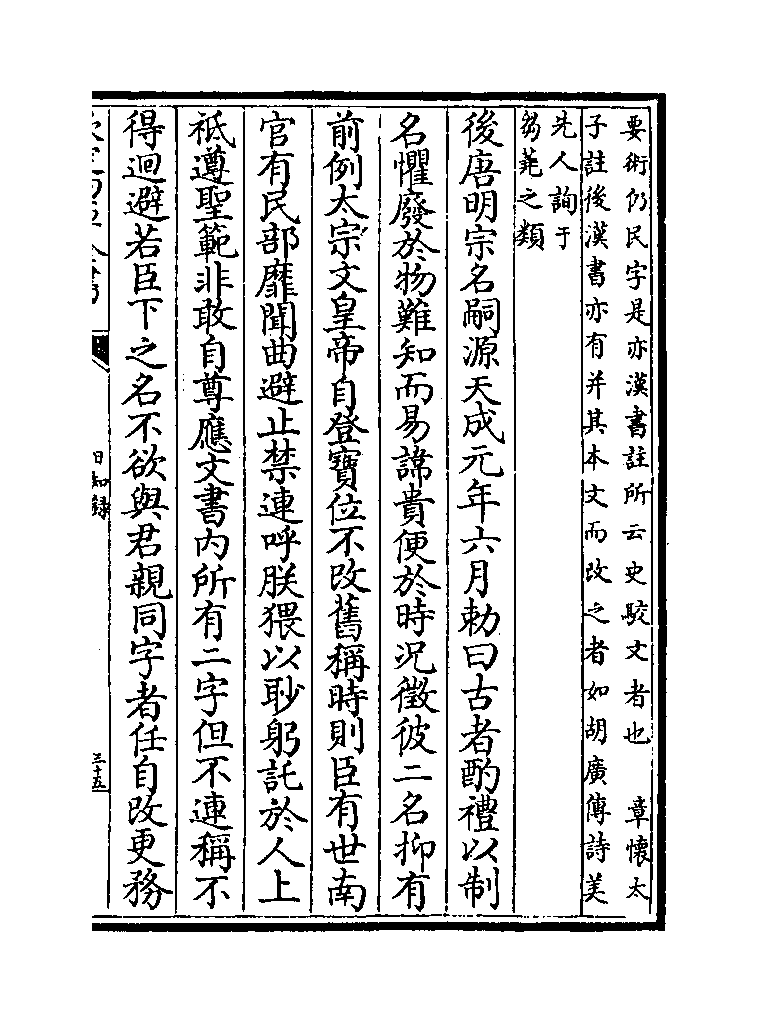 要術仍民字是亦漢書註所云史駮文者也　章懷太
子註後漢書亦有并其本文而改之者如胡廣傳詩美
先人詢于
芻蕘之類
後唐明宗名嗣源天成元年六月勅曰古者酌禮以制
名懼廢於物難知而易諱貴便於時況徵彼二名抑有
前例太宗文皇帝自登寶位不改舊稱時則臣有世南
官有民部靡聞曲避止禁連呼朕猥以眇躬託於人上
祗遵聖範非敢自尊應文書内所有二字但不連稱不
得迴避若臣下之名不欲與君親同字者任自改更務
日知錄
三十五